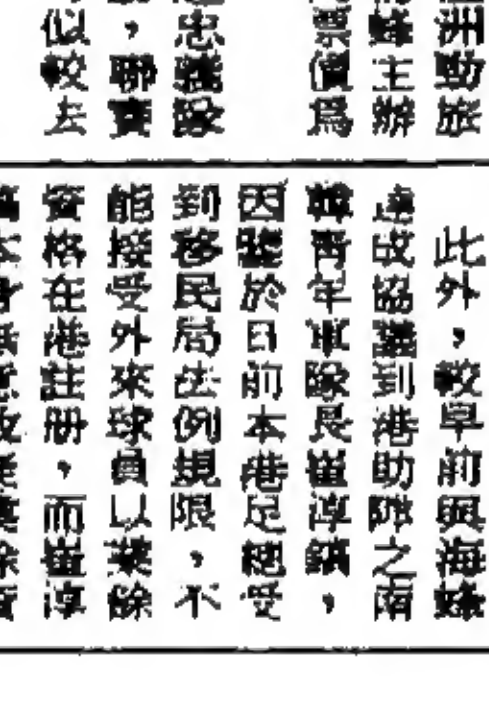 洲動旅
蜂主辦
票價爲
忠義隊
，聯賽
似較去
此外，較早前與海蜂
達成協議到港助陣之南
韓青年軍隊長崔淳鎬，
因鑒於日前本港足總受
到移民局法例規限，不
能接受外來球員以業餘
資格在港註册，而崔淳